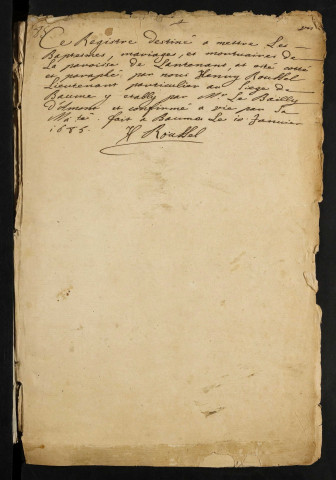 Ce Registre destiné a mettre Les
Baptesmes, mariages, et mortuaires de
La paroisse de Lantenans, et esté cotté
et paraphé par nous Henry Roussel
Lieutenant particulier au siege de
Baume y estably par Mr Le Bailly
d'Amont et confirmé a vie par sa
Ma.té fait a Baume Le 10 Janvier
1685.
H Roussel